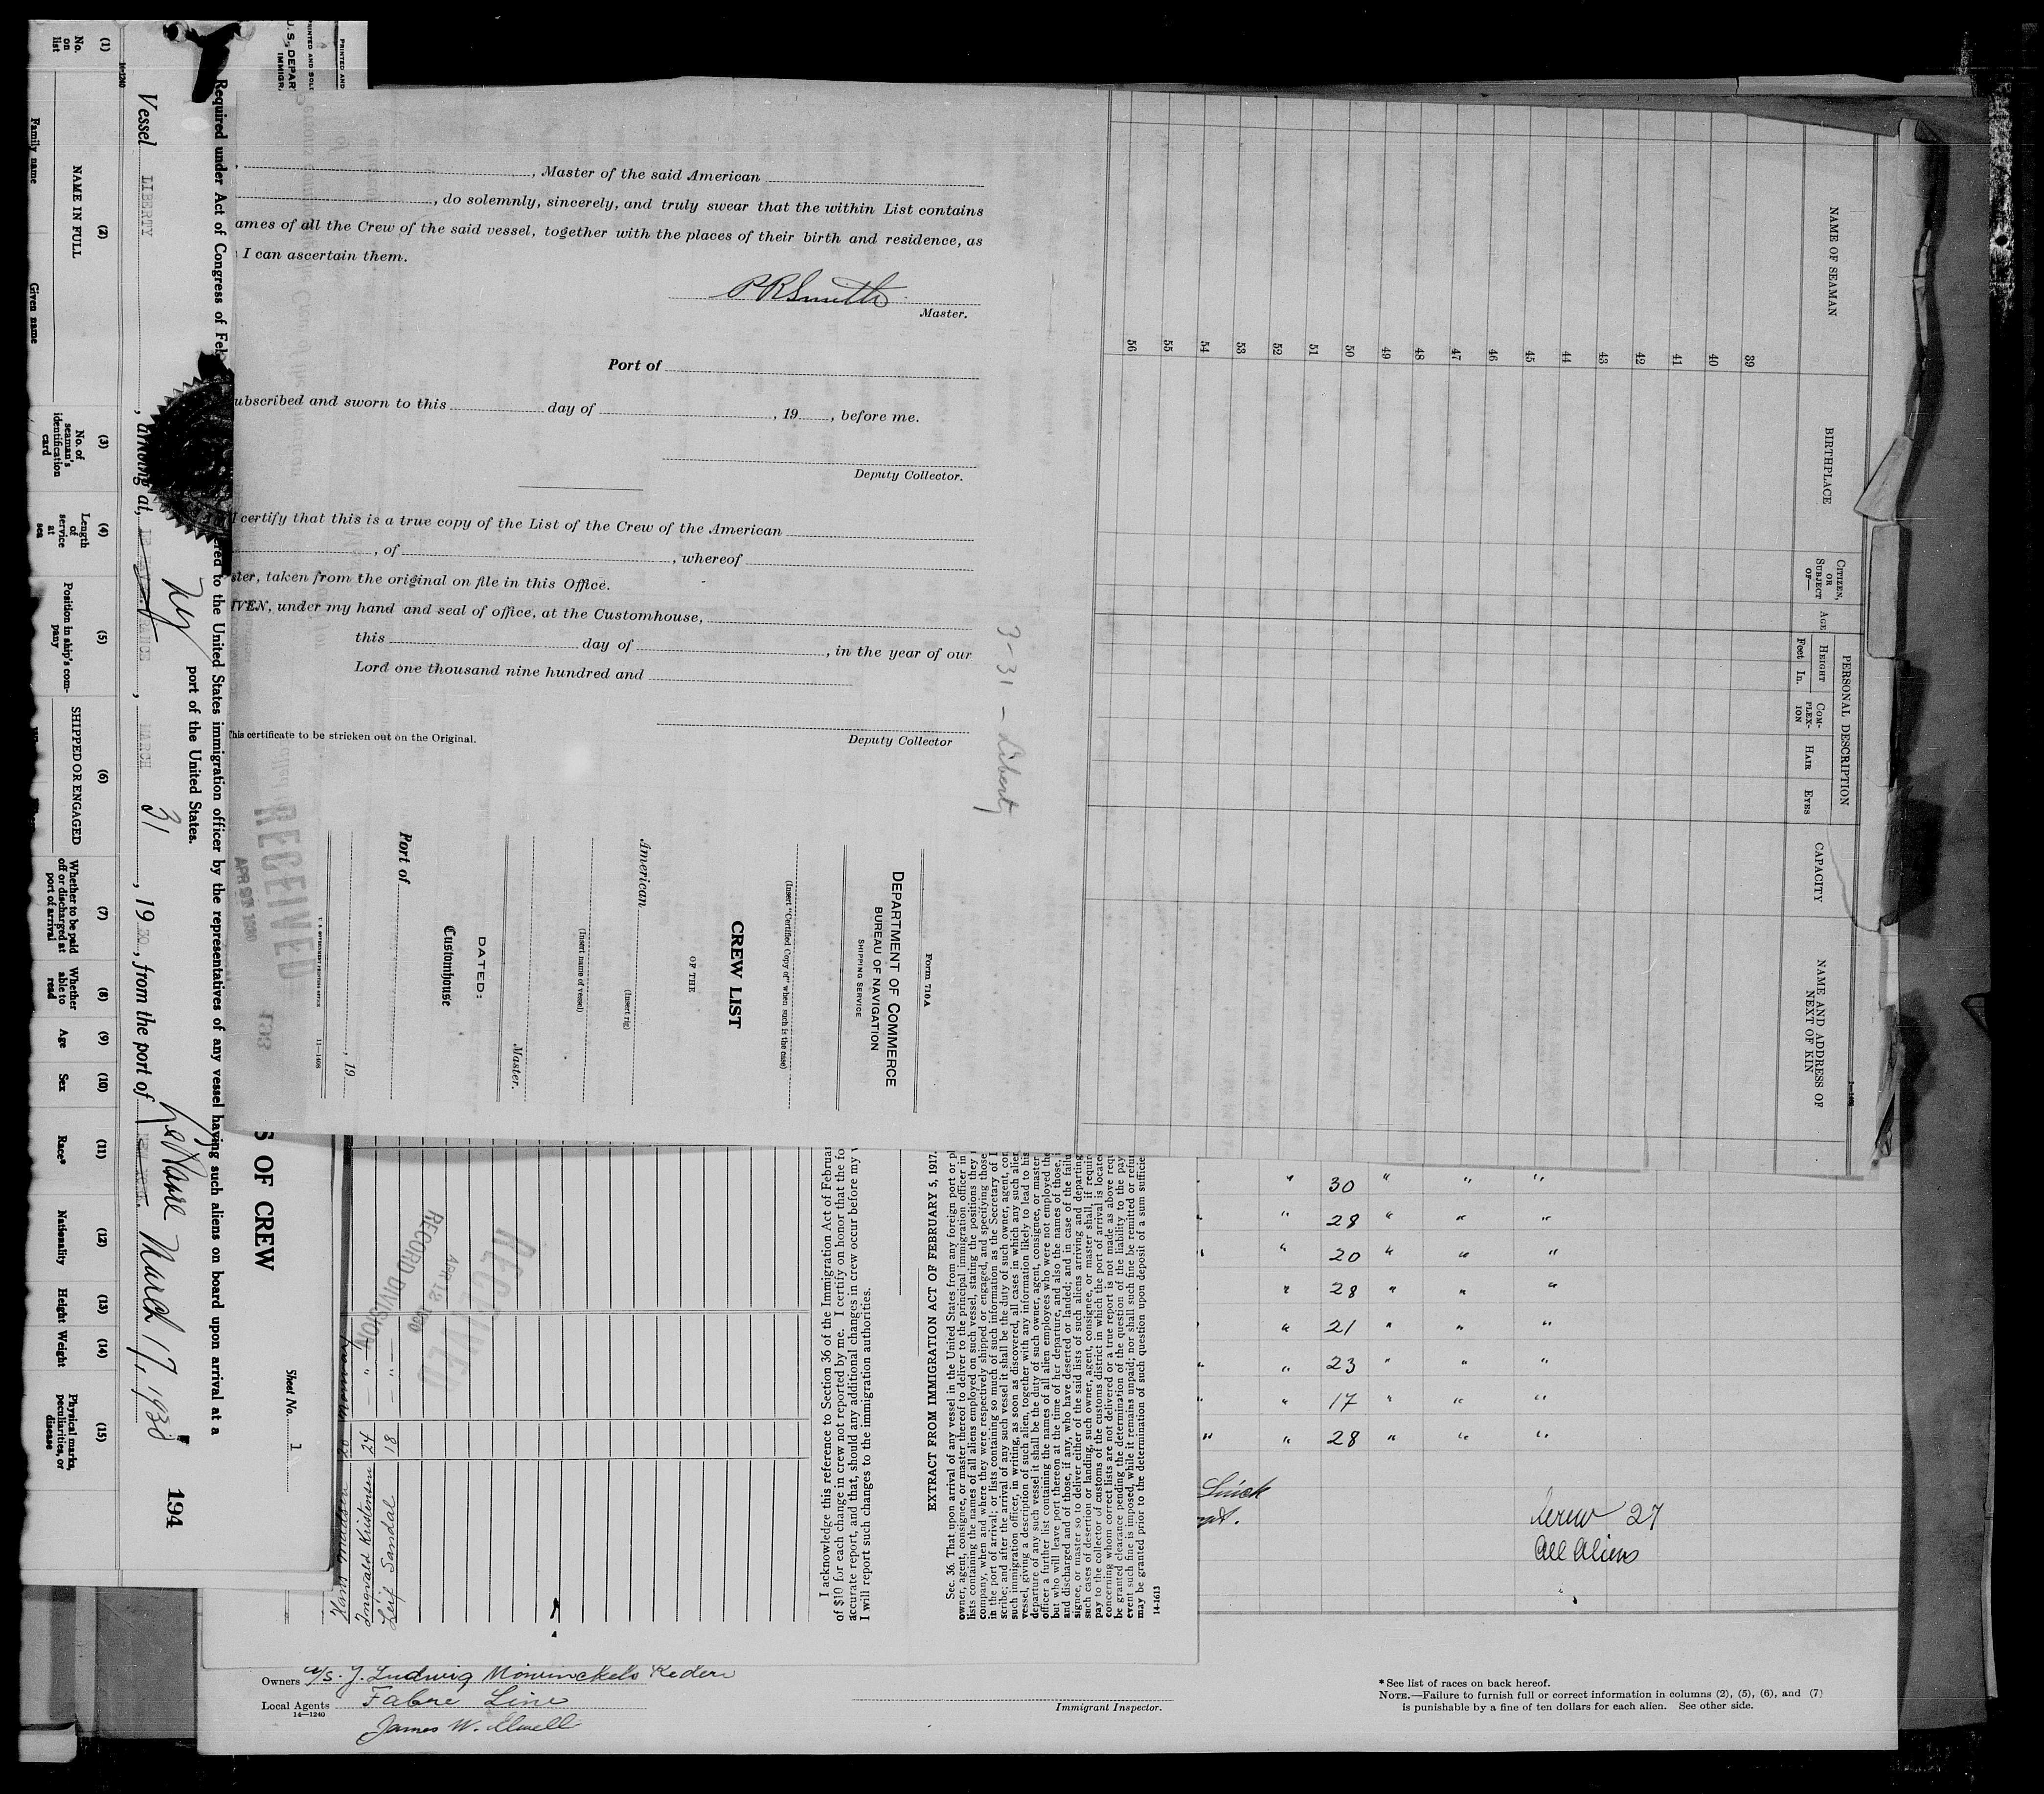 , Master of the said American
, do solemnly, sincerely, and truly swear that the within List contains
ames of all the Crew of the said vessel, together with the places of their birth and residence, as
I can ascertain them.
P R Smith
Master.
Port of
ubscribed and sworn to this day of , 19 , before me.
Deputy Collector.
I certify that this is a true copy of the List of the Crew of the American
, of , whereof
ster, taken from the original on file in this Office.
IVEN, under my hand and seal of office, at the Customhouse,
this day of , in the year of our
Lord one thousand nine hundred and
Deputy Collector
This certificate to be stricken out on the Original.
3-31-Liberty
Form 710A
DEPARTMENT OF COMMERCE
BUREAU OF NAVIGATION
SHIPPING SERVICE
(Insert "Certified Copy of" when such is the case)
CREW LIST
OF THE
American
(Insert rig)
(Insert name of vessel)
Master.
DATED:
Customhouse
Port of
, 19
U. S. GOVERNMENT PRINTING OFFICE 11-1408
RECEIVED
193
NAME OF SEAMAN
BIRTHPLACE
CITIZEN, OR SUBJECT OF—
AGE
PERSONAL DESCRIPTION
HEIGHT
Feet In.
COMPLEXION
HAIR
EYES
CAPACITY
NAME AND ADDRESS OF NEXT OF KIN
39
40
41
42
43
44
45
46
47
48
49
50
51
52
53
54
55
56
PRINTED AND
PRINTED AND SOLD
U. S. DEPAR
IMMIGR
S OF CREW
Sheet No. 1
Required under Act of Congress of Feb
ered to the United States immigration officer by the representatives of any vessel having such aliens on board upon arrival at a
port of the United States.
194
Vessel LIBERTY , arriving at, NY , MARCH 31 , 1930, from the port of Le Havre March 17, 1930
14-1240
(1) (2) (3) (4) (5) (6) (7) (8) (9) (10) (11) (12) (13) (14) (15)
No. on list
NAME IN FULL
Family name Given name
No. of seaman's identification card
Length of service at sea
Position in ship's company
SHIPPED OR ENGAGED
Whether to be paid off or discharged at port of arrival
Whether able to read
Age
Sex
Race*
Nationality
Height
Weight
Physical marks, peculiarities, or disease
Hans Madsen 20
Ingvald Kristensen 24 — " —
Leif Sandal 18 — " —
RECEIVED
APR 12 1930
RECORD DIVISION
I acknowledge this reference to Section 36 of the Immigration Act of Februar
of $10 for each change in crew not reported by me. I certify on honor that the fo
accurate report, and that, should any additional changes in crew occur before my
I will report such changes to the immigration authorities.
EXTRACT FROM IMMIGRATION ACT OF FEBRUARY 5, 1917.
Sec. 36. That upon arrival of any vessel in the United States from any foreign port or pl
owner, agent, consignee, or master thereof to deliver to the principal immigration officer in
lists containing the names of all aliens employed on such vessel, stating the positions they
company, when and where they were respectively shipped or engaged, and specifying those
in the port of arrival; or lists containing so much of such information as the Secretary of L
scribe; and after the arrival of any such vessel it shall be the duty of such owner, agent, con
such immigration officer, in writing, as soon as discovered, all cases in which any such alien
vessel, giving a description of such alien, together with any information likely to lead to his
departure of any such vessel it shall be the duty of such owner, agent, consignee, or master
officer a further list containing the names of all alien employees who were not employed the
but who will leave port thereon at the time of her departure, and also the names of those, i
and discharged and of those, if any, who have deserted or landed; and in case of the failu
signee, or master so to deliver either of the said lists of such aliens arriving and departing
such cases of desertion or landing, such owner, agent, consignee, or master shall, if require
pay to the collector of customs of the customs district in which the port of arrival is locate
concerning whom correct lists are not delivered or a true report is not made as above requ
be granted clearance pending the determination of the question of the liability to the pay
event such fine is imposed, while it remains unpaid; nor shall such fine be remitted or refun
may be granted prior to the determination of such question upon deposit of a sum sufficie
14-1613
" 30 " " "
" 28 " " "
" 20 " " "
" 28 " " "
" 21 " " "
" 23 " " "
" 17 " " "
" 28 " " "
Crew 27
All Aliens
Owners A/s. J. Ludwig Mowinckels Rederi
Local Agents Fabre Line
14—1240
James W. Elwell
Immigrant Inspector.
* See list of races on back hereof.
NOTE.—Failure to furnish full or correct information in columns (2), (5), (6), and (7)
is punishable by a fine of ten dollars for each alien. See other side.